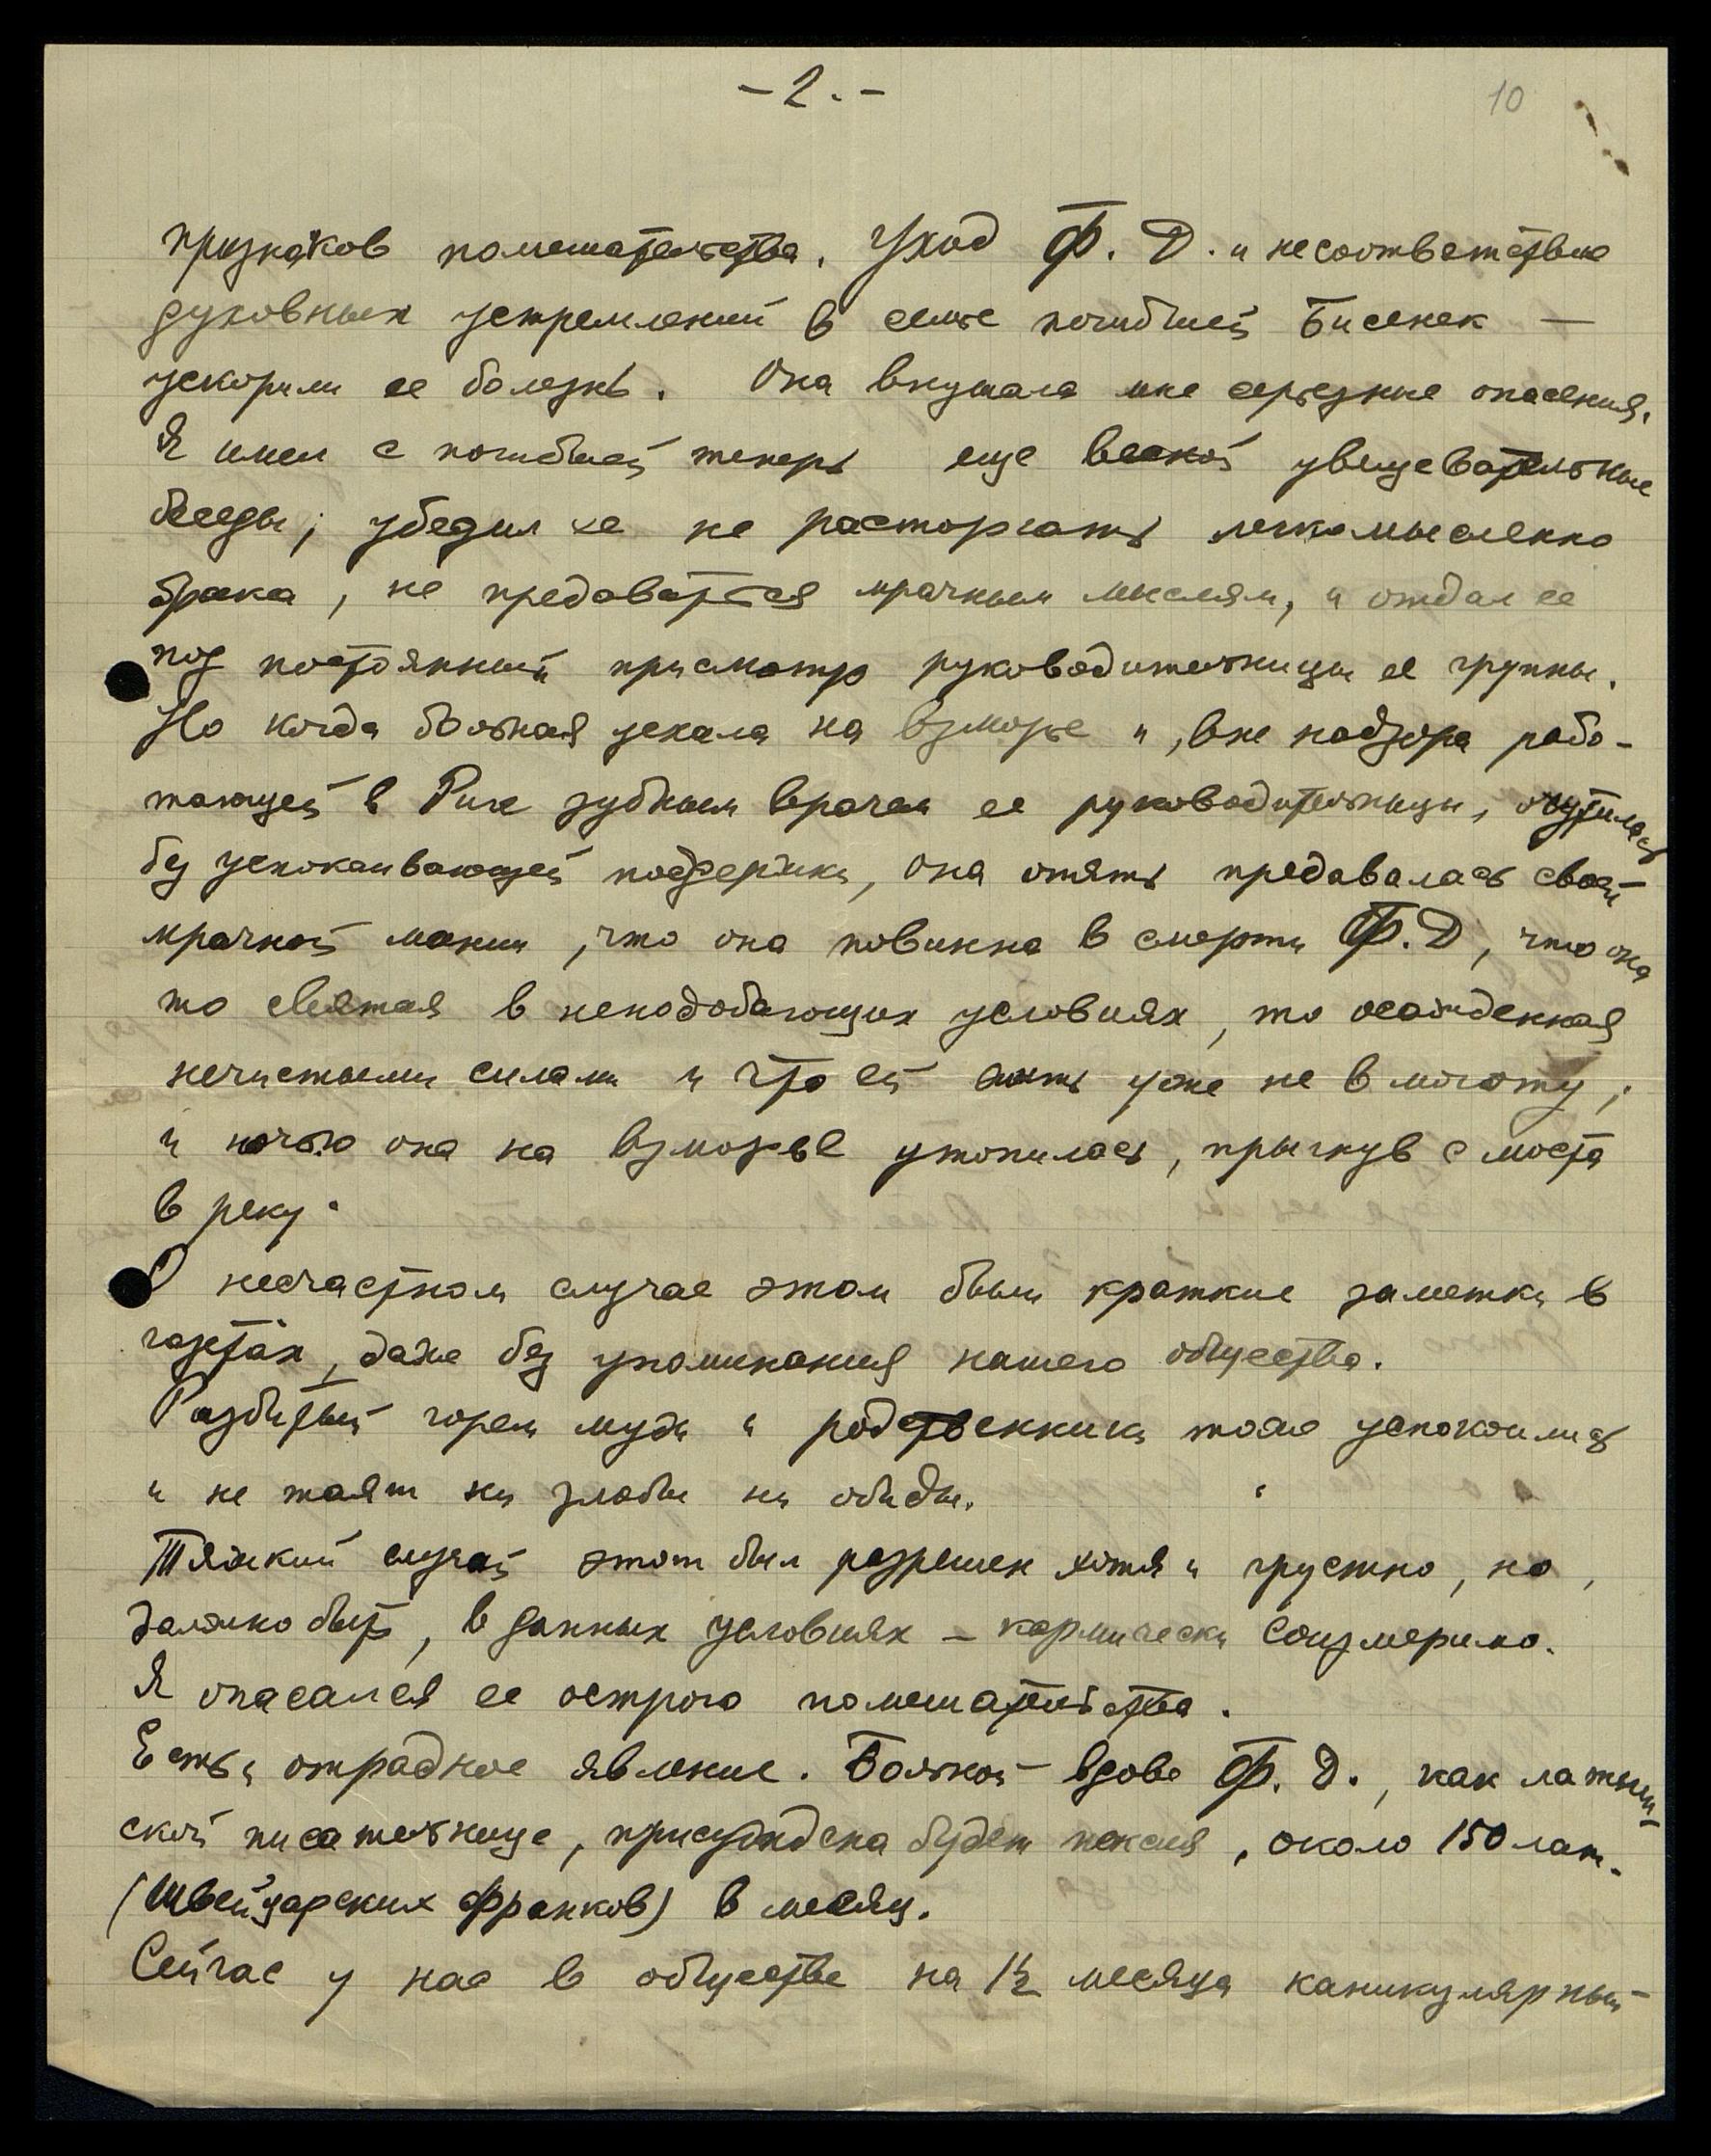 - 2. -
10
признаков помешательства. Уход Ф. Д. и несоответствие
духовных устремлений в семье погибшей Бисенек —
ускорили ее болезнь. Она внушала мне серьезные опасения.
Я имел с погибшей теперь еще весной увещевательные
беседы; убедил ее не расторгать легкомысленно
брака, не предаваться мрачным мыслям, и отдал ее
под постоянный присмотр руководительницы ее группы.
Но когда больная уехала на взморье и, вне надзора рабо-
тающей в Риге зубным врачем ее руководительницы, очутилась
без успокаивающей поддержки, она опять предавалась своей
мрачной мании, что она повинна в смерти Ф. Д, что она
то святая в неподобающих условиях, то осажденная
нечистыми силами и что ей жить уже не в моготу;
и ночью она на взморье утопилась, прыгнув с моста
в реку.
О несчастном случае этом были краткие заметки в
газетах, даже без упоминания нашего общества.
Разбитый горем муж и родственники тоже успокоились
и не таят ни злобы ни обиды.
Тяжкий случай этот был разрешен хотя и грустно, но,
должно быть, в данных условиях — кармически соизмеримо.
Я опасался ее острого помешательства.
Есть и отрадное явление. Больной вдове Ф. Д., как латыш-
ской писательнице, присуждена будет пенсия, около 150 лат.
(швейцарских франков) в месяц.
Сейчас у нас в обществе на 1½ месяца каникулярный